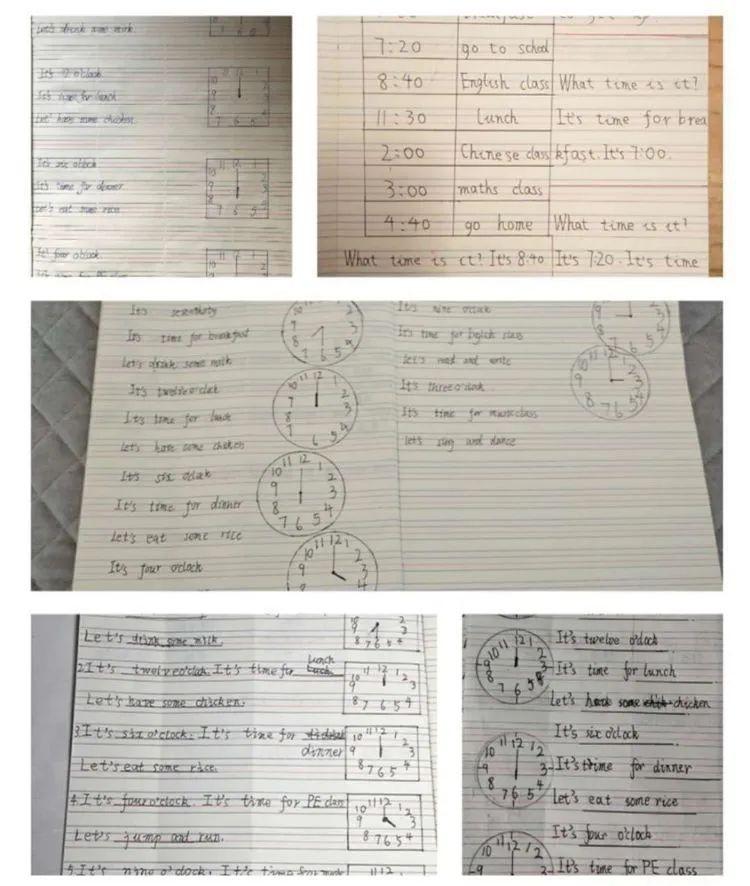 Let's drink some milk.
It's 12 o'clock
It's time for lunch
Let' have some chicken.
It's six o'clock
It's time for dinner
Let's eat some rice
It' four o'clock.
7:20 go to school
8:40 English class What time is it?
11:30 lunch It's time for brea
2:00 Chinese class kfast. It's 7:00.
3:00 maths class
4:40 go home What time is it?
What time is it? It's 8:40 It's 7:20. It's time
It's
It's time for breakfast
Let's drink some milk
It's twelve o'clock
It's time for lunch
Let's have some chicken
It's six o'clock
It's time for dinner
Let's eat some rice
It's four o'clock
It's nine o'clock
It's time for English class
Let's read and write
It's three o'clock
It's time for music class
Let's sing and dance
Let's drink some milk.
lunch
2. It's twelve o'clock. It's time for
Let's have some chicken.
3. It's six o'clock. It's time for
dinner
Let's eat some rice.
4. It's four o'clock. It's time for PE class
Let's jump and run.
5. It's nine o'clock. It's time for
It's twelve o'clock
It's time for lunch
Let's some chicken
It's six o'clock
It's time for dinner
Let's eat some rice
It's four o'clock
It's time for PE class